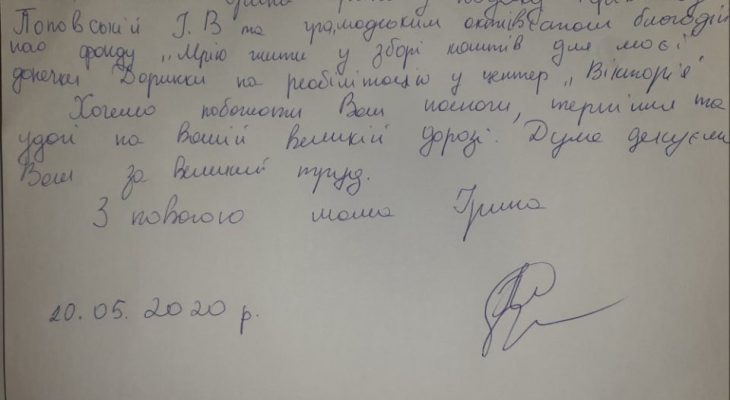 Поповській І.В та громадським активістам благодій
ного фонду "Мрію жити у зборі коштів для моєї
донечки Даринки на реабілітацію у центер "Вікторія"
Хочемо побажати Вам наснаги, терпіння та
удачі на Вашій великій дорозі. Дуже дякуємо
Вам за великий труд.
З повагою мама Ірина
20.05.2020 р.